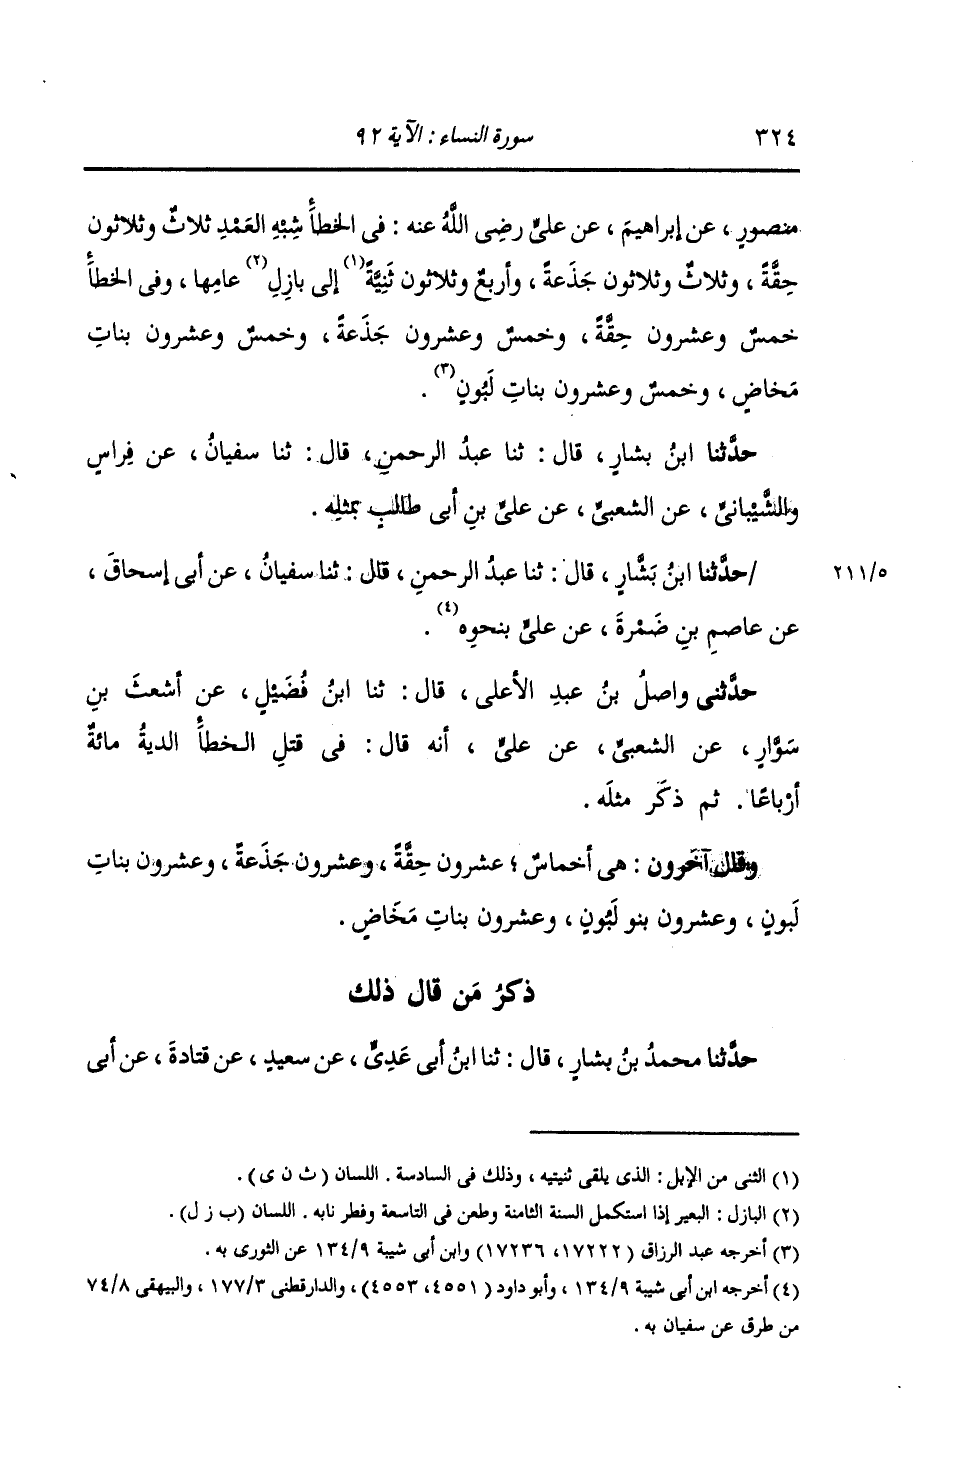 ٣٢٤ سورة النساء : الآية ٩٢
منصورٍ ، عن إبراهيمَ ، عن علىٍّ رضِى اللَّهُ عنه : فى الخطأَ شِبْهِ العَمْدِ ثلاثٌ وثلاثون
حِقَّةً ، وثلاثٌ وثلاثون جَذَعةً ، وأربعٌ وثلاثون ثَنِيَّةً(١) إلى بازِلِ(٢) عامِها ، وفى الخطأَ
خمسٌ وعشرون حِقَّةً ، وخمسٌ وعشرون جَذَعةً ، وخمسٌ وعشرون بناتِ
مَخاضٍ ، وخمسٌ وعشرون بناتِ لَبُونٍ(٣) .
حدَّثنا ابنُ بشارٍ ، قال : ثنا عبدُ الرحمنِ ، قال : ثنا سفيانُ ، عن فِراسٍ
والشَّيْبانىِّ ، عن الشعبىِّ ، عن علىِّ بنِ أبى طالبٍ بمثلِه .
٢١١/٥ /حدَّثنا ابنُ بَشَّارٍ ، قال : ثنا عبدُ الرحمنِ ، قال : ثنا سفيانُ ، عن أبى إسحاقَ ،
عن عاصمِ بنِ ضَمْرةَ ، عن علىٍّ بنحوِه(٤) .
حدَّثنى واصلُ بنُ عبدِ الأعلى ، قال : ثنا ابنُ فُضَيْلٍ ، عن أشعثَ بنِ
سَوَّارٍ ، عن الشعبىِّ ، عن علىٍّ ، أنه قال : فى قتلِ الخطأَ الديةُ مائةٌ
أرْباعًا . ثم ذكَر مثلَه .
وقال آخَرون : هى أخماسٌ ؛ عشرون حِقَّةً ، وعشرون جَذَعةً ، وعشرون بناتِ
لَبونٍ ، وعشرون بنو لَبُونٍ ، وعشرون بناتِ مَخَاضٍ .
ذكرُ مَن قال ذلك
حدَّثنا محمدُ بنُ بشارٍ ، قال : ثنا ابنُ أبى عَدِىٍّ ، عن سعيدٍ ، عن قتادةَ ، عن أبى
(١) الثنى من الإبل : الذى يلقى ثنيتيه ، وذلك فى السادسة . اللسان ( ث ن ى ) .
(٢) البازل : البعير إذا استكمل السنة الثامنة وطعن فى التاسعة وفطر نابه . اللسان (ب ز ل) .
(٣) أخرجه عبد الرزاق ( ١٧٢٢٢، ١٧٢٣٦) وابن أبى شيبة ١٣٤/٩ عن الثورى به .
(٤) أخرجه ابن أبى شيبة ١٣٤/٩ ، وأبو داود ( ٤٥٥١، ٤٥٥٣) ، والدارقطنى ١٧٧/٣ ، والبيهقى ٧٤/٨
من طرق عن سفيان به .